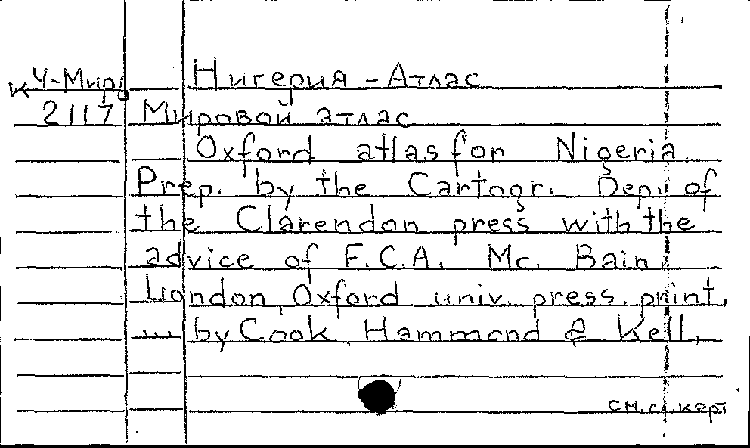 К Ч-Мир Нигерия - Атлас
2117 Мировой атлас
Oxford atlas for Nigeria.
Prep. by the Cartogr. Dep. of
the Clarendon press with the
advice of F.C.A. Mc. Bain.
London, Oxford univ. press, print.
... by Cook, Hammond & Kell,
см. сл. карт